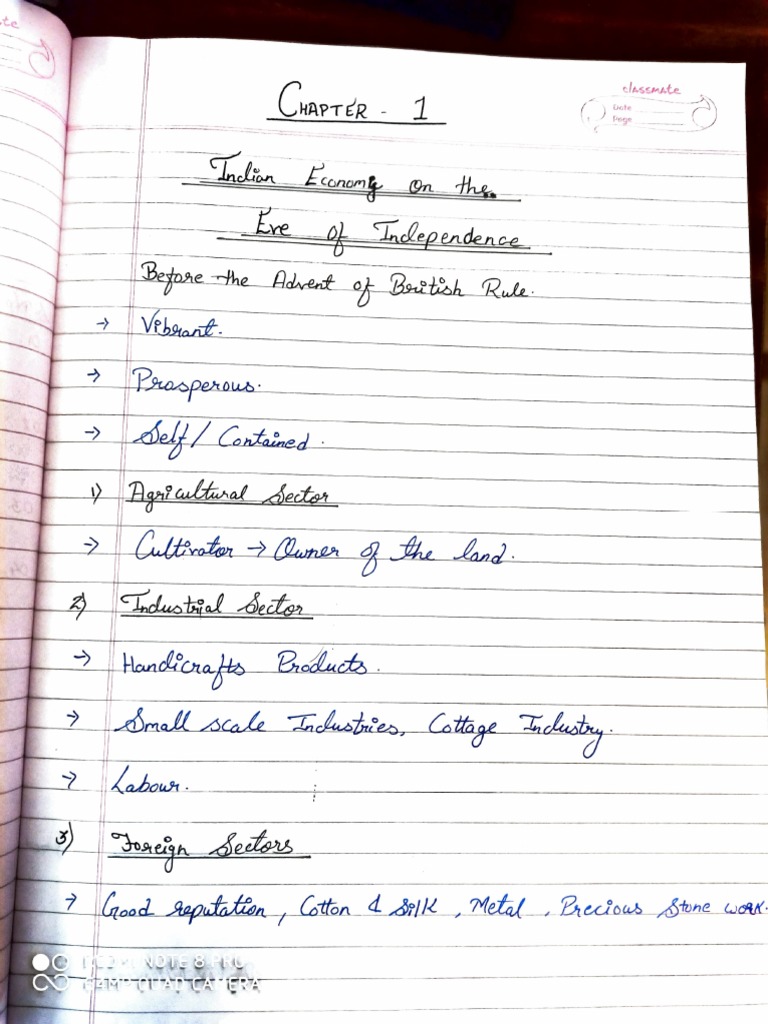 CHAPTER - 1
classmate
Date
Page
Indian Economy on the
Eve of Independence
Before the Advent of British Rule.
→ Vibrant.
→ Prosperous.
→ Self / Contained.
1) Agricultural Sector
→ Cultivator → Owner of the land.
2) Industrial Sector
→ Handicrafts Products.
→ Small scale Industries, Cottage Industry.
→ Labour.
3) Foreign Sectors
→ Good reputation, Cotton & Silk, Metal, Precious Stone work.
NOTE 8 PRO
64MP QUAD CAMERA